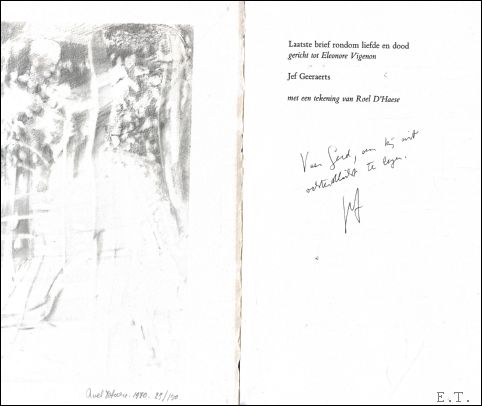 Laatste brief rondom liefde en dood
gericht tot Eleonore Vigenon
Jef Geeraerts
met een tekening van Roel D'Haese
Voor Gerd, om bij
te
Jef
Roel D'Haese. 1980. 25/150
E.T.